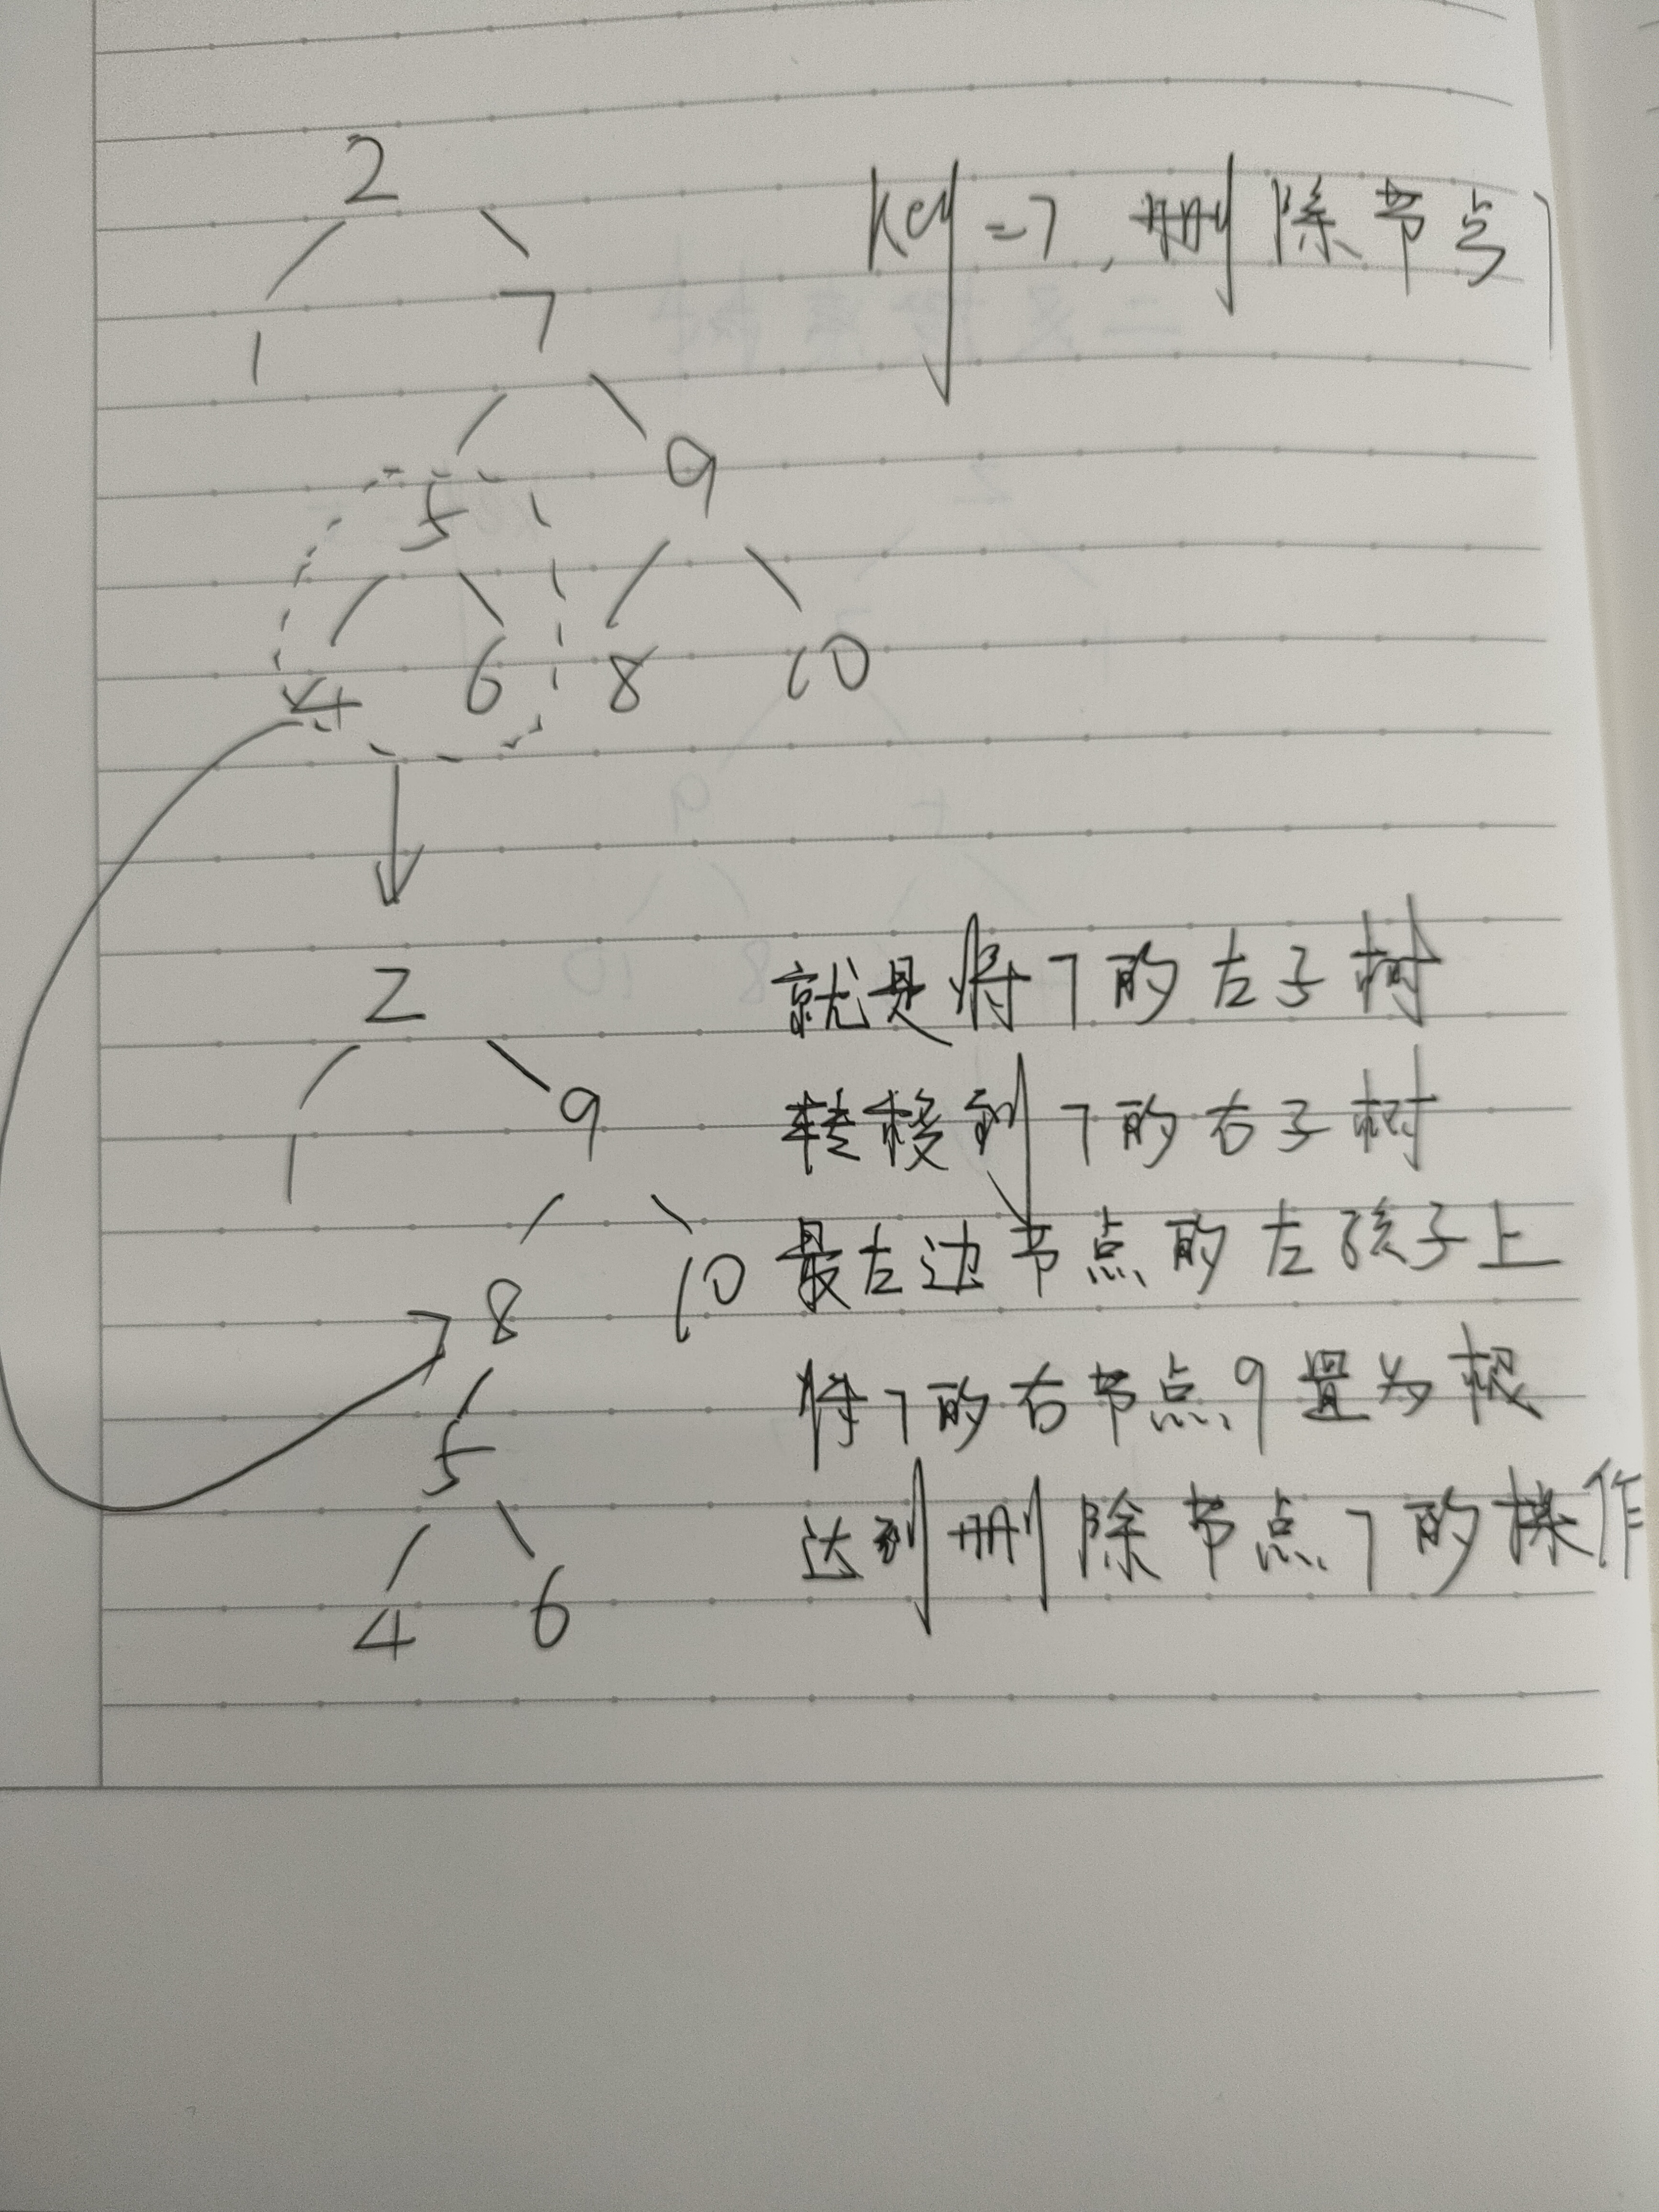 2
key=7,删除节点7
1 7
5 9
4 6 8 10
2
就是将7的左子树
1 9
转移到7的右子树
8 10
最左边节点的左孩子上
5
将7的右节点9置为根
4 6
达到删除节点7的操作